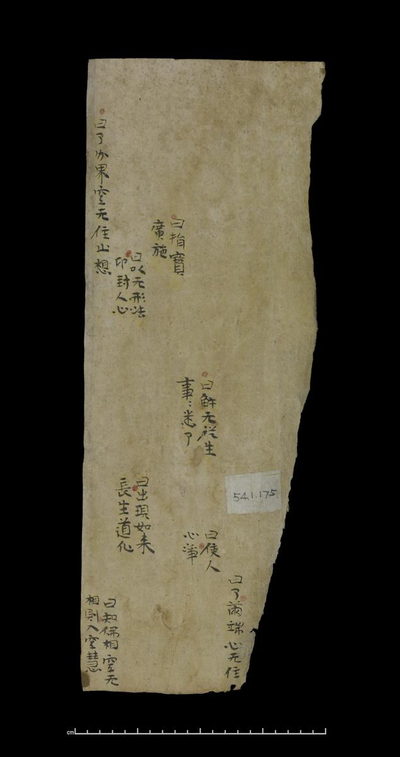 曰了兩端心无住
541.175
曰使人
心淨
曰解无從生
事〻悉了
曰指寶
廣施
曰出現如来
長生道化
曰以无形法
印封人心
曰知佛相空无
相則入空慧
曰了果空无住止想